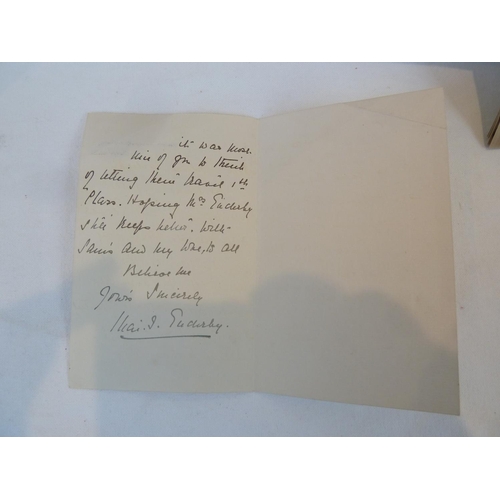 it was most
kind of you to think
of letting them travel 1st
Class. Hoping Mrs Enderby
still keeps better. With
and my love, to all
Believe me
Yours Sincerely
Enderby.